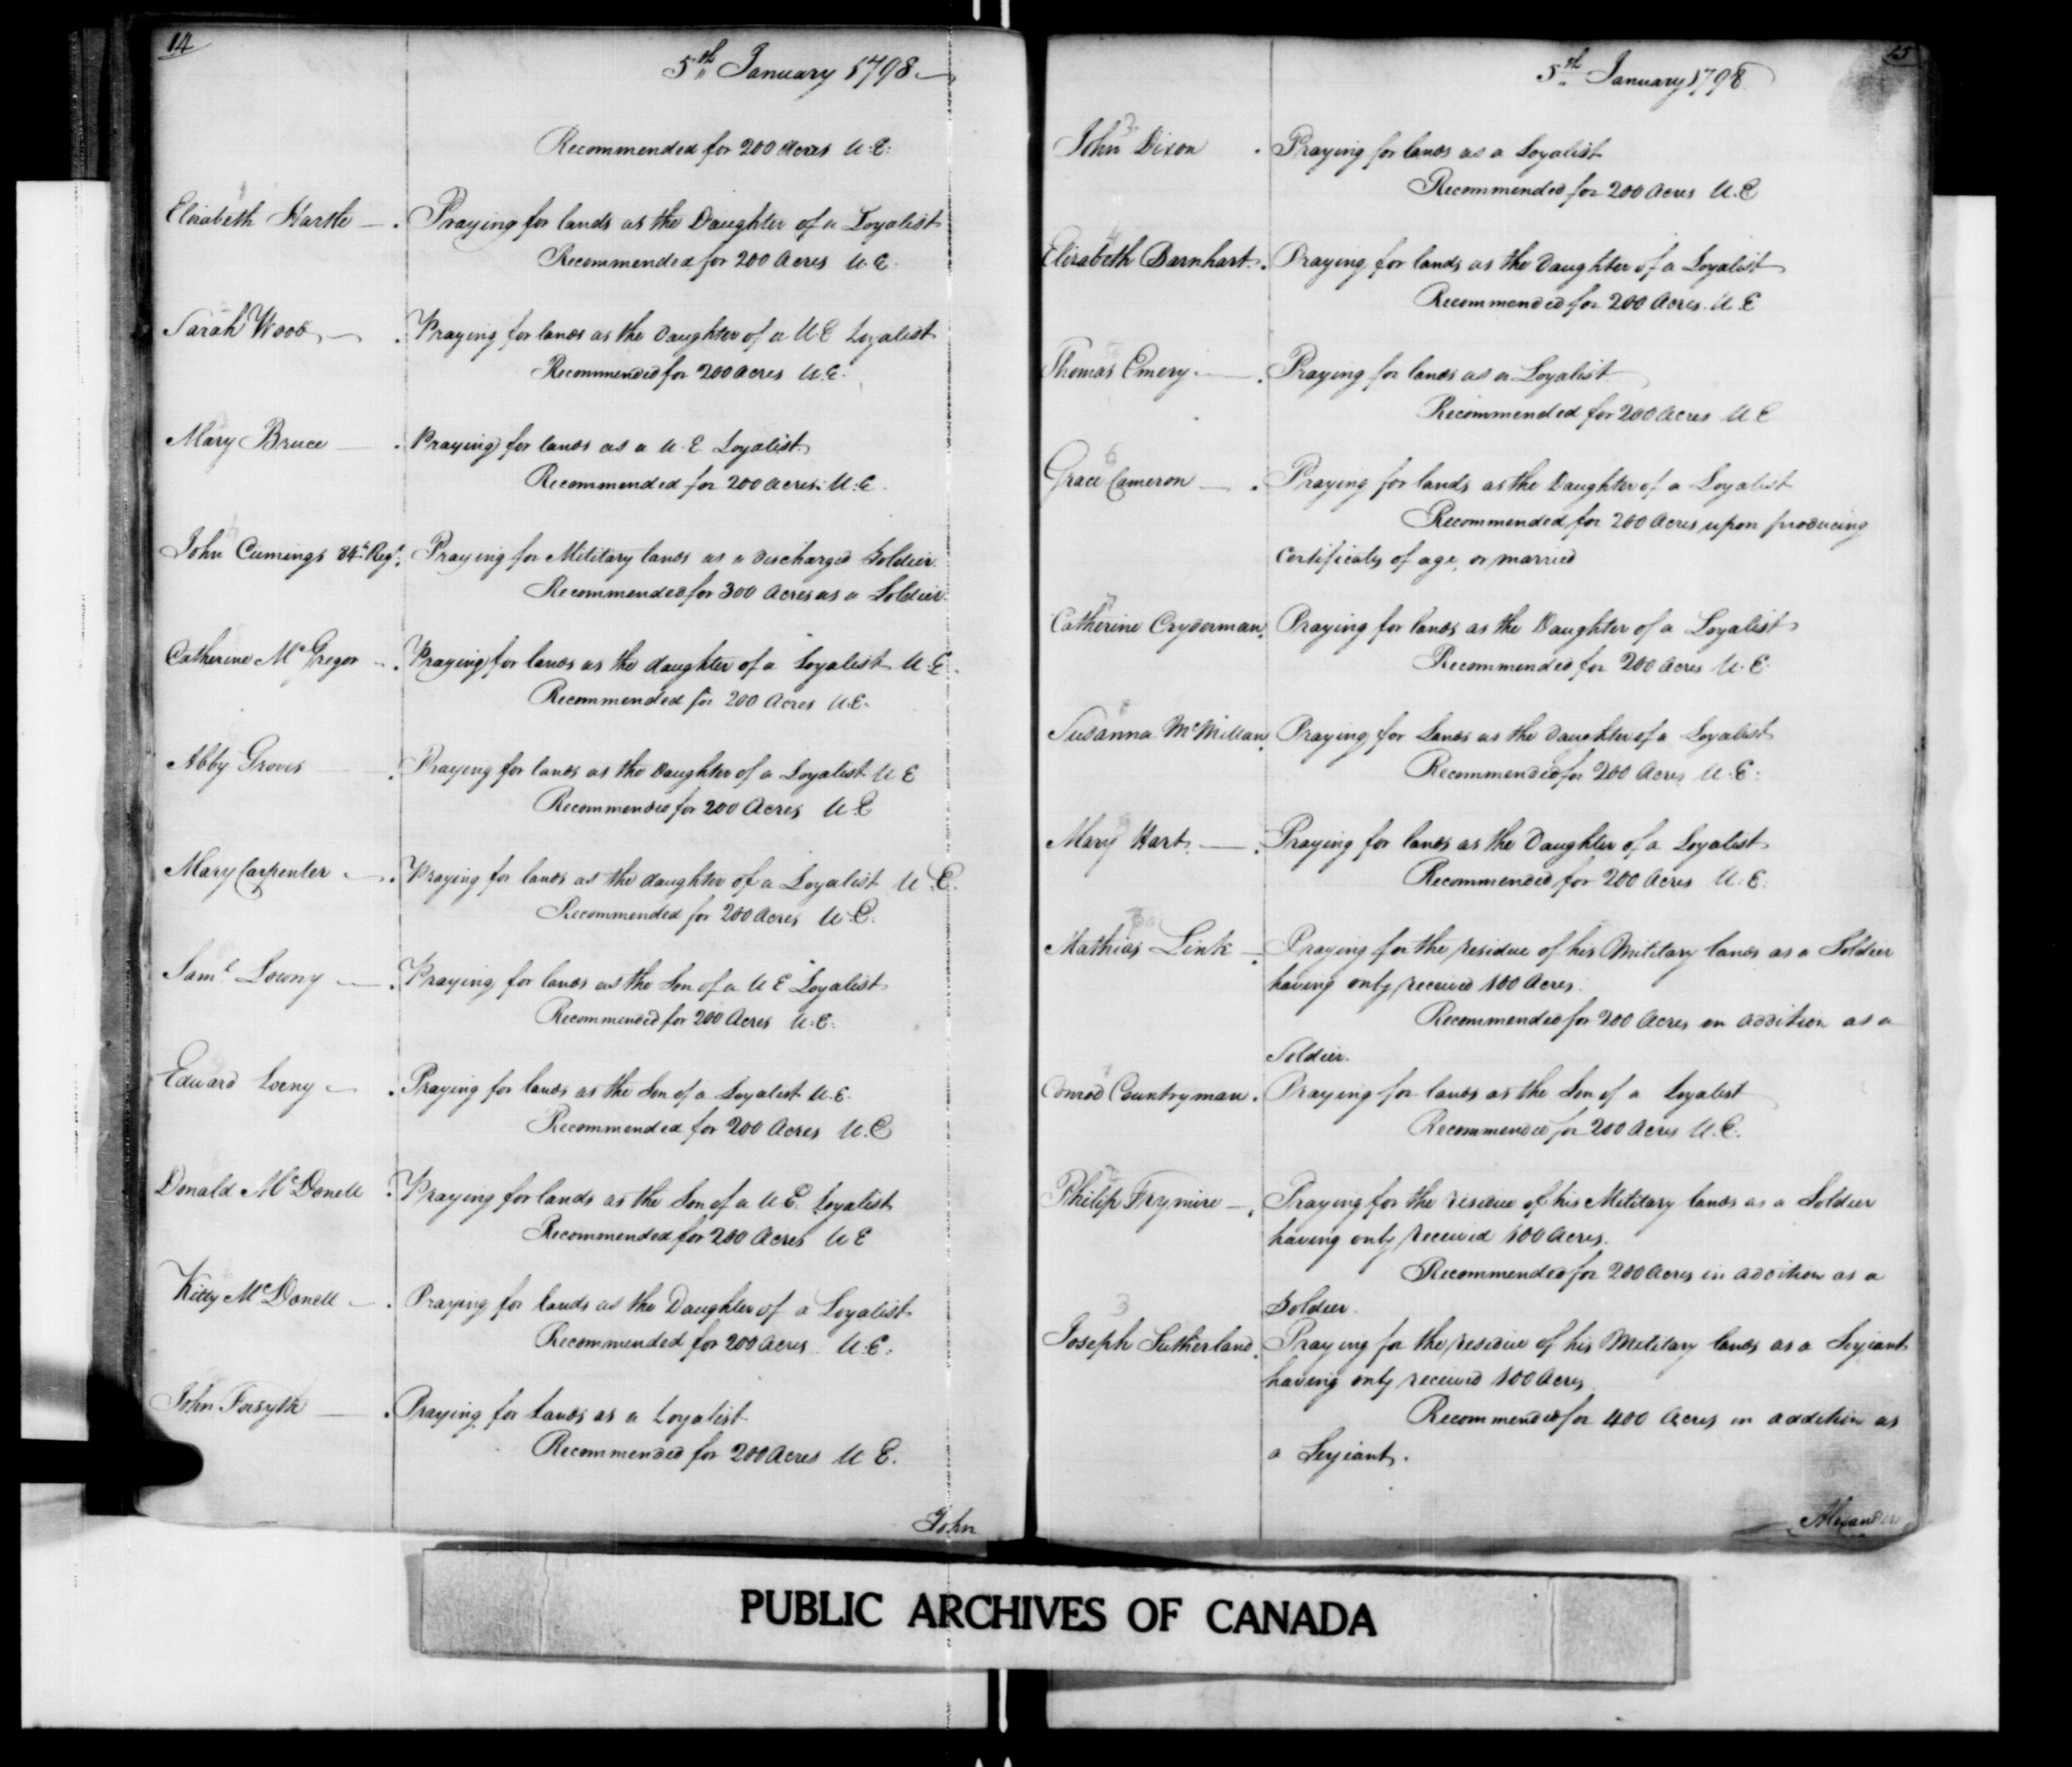 14
5th January 1798
Recommended for 200 Acres U.E.
Elizabeth Hartle — . Praying for lands as the Daughter of a Loyalist
Recommended for 200 Acres U.E.
Sarah Wood — . Praying for lands as the Daughter of a U.E Loyalist
Recommended for 200 Acres U.E.
Mary Bruce — . Praying for lands as a U.E Loyalist
Recommended for 200 acres. U.E.
John Cumings 84th Regt. Praying for Military lands as a discharged Soldier.
Recommended for 300 Acres as a Soldier.
Catherine McGregor - . Praying for lands as the daughter of a Loyalist U.E.
Recommended for 200 Acres U.E.
Abby Groves . Praying for lands as the Daughter of a Loyalist U E
Recommended for 200 Acres U.E
Mary Carpenter — . Praying for lands as the daughter of a Loyalist U.E.
Recommended for 200 Acres U.E.
Saml Lowny — . Praying for lands as the Son of a U E Loyalist
Recommended for 200 Acres U.E.
Edward Loeny — . Praying for lands as the Son of a Loyalist U.E.
Recommended for 200 Acres U.E
Donald McDonell . Praying for lands as the Son of a U.E. Loyalist
Recommended for 200 Acres U E
Kitty McDonell — . Praying for lands as the Daughter of a Loyalist
Recommended for 200 Acres U.E.
John Forsyth — . Praying for Lands as a Loyalist
Recommended for 200 Acres U E.
John
15
5th January 1798
3
John Dixon . Praying for lands as a Loyalist
Recommended for 200 Acres U.E
4
Elizabeth Barnhart . Praying for lands as the Daughter of a Loyalist
Recommended for 200 Acres. U.E
Thomas Emery — . Praying for lands as a Loyalist
Recommended for 200 Acres U E
6
Grace Cameron — . Praying for lands as the Daughter of a Loyalist
Recommended for 200 Acres upon producing
Certificates of age, or married
7
Catherine Cryderman . Praying for lands as the Daughter of a Loyalist
Recommended for 200 Acres U.E.
8
Susanna McMillan . Praying for Lands as the Daughter of a Loyalist
Recommended for 200 Acres U.E.
Mary Hart — . Praying for lands as the Daughter of a Loyalist
Recommended for 200 Acres U.E.
Mathias Link — . Praying for the residue of his Military lands as a Soldier
having only received 100 Acres.
Recommended for 200 Acres in addition as a
Soldier.
Conrod Countryman . Praying for lands as the Son of a Loyalist
Recommended for 200 Acres U.E.
2
Philip Frymire — . Praying for the residue of his Military lands as a Soldier
having only received 100 Acres.
Recommended for 200 Acres in addition as a
Soldier.
3
Joseph Sutherland . Praying for the residue of his Military lands as a Serjeant
having only received 100 Acres
Recommended for 400 Acres in addition as
a Serjeant.
Alexander
PUBLIC ARCHIVES OF CANADA